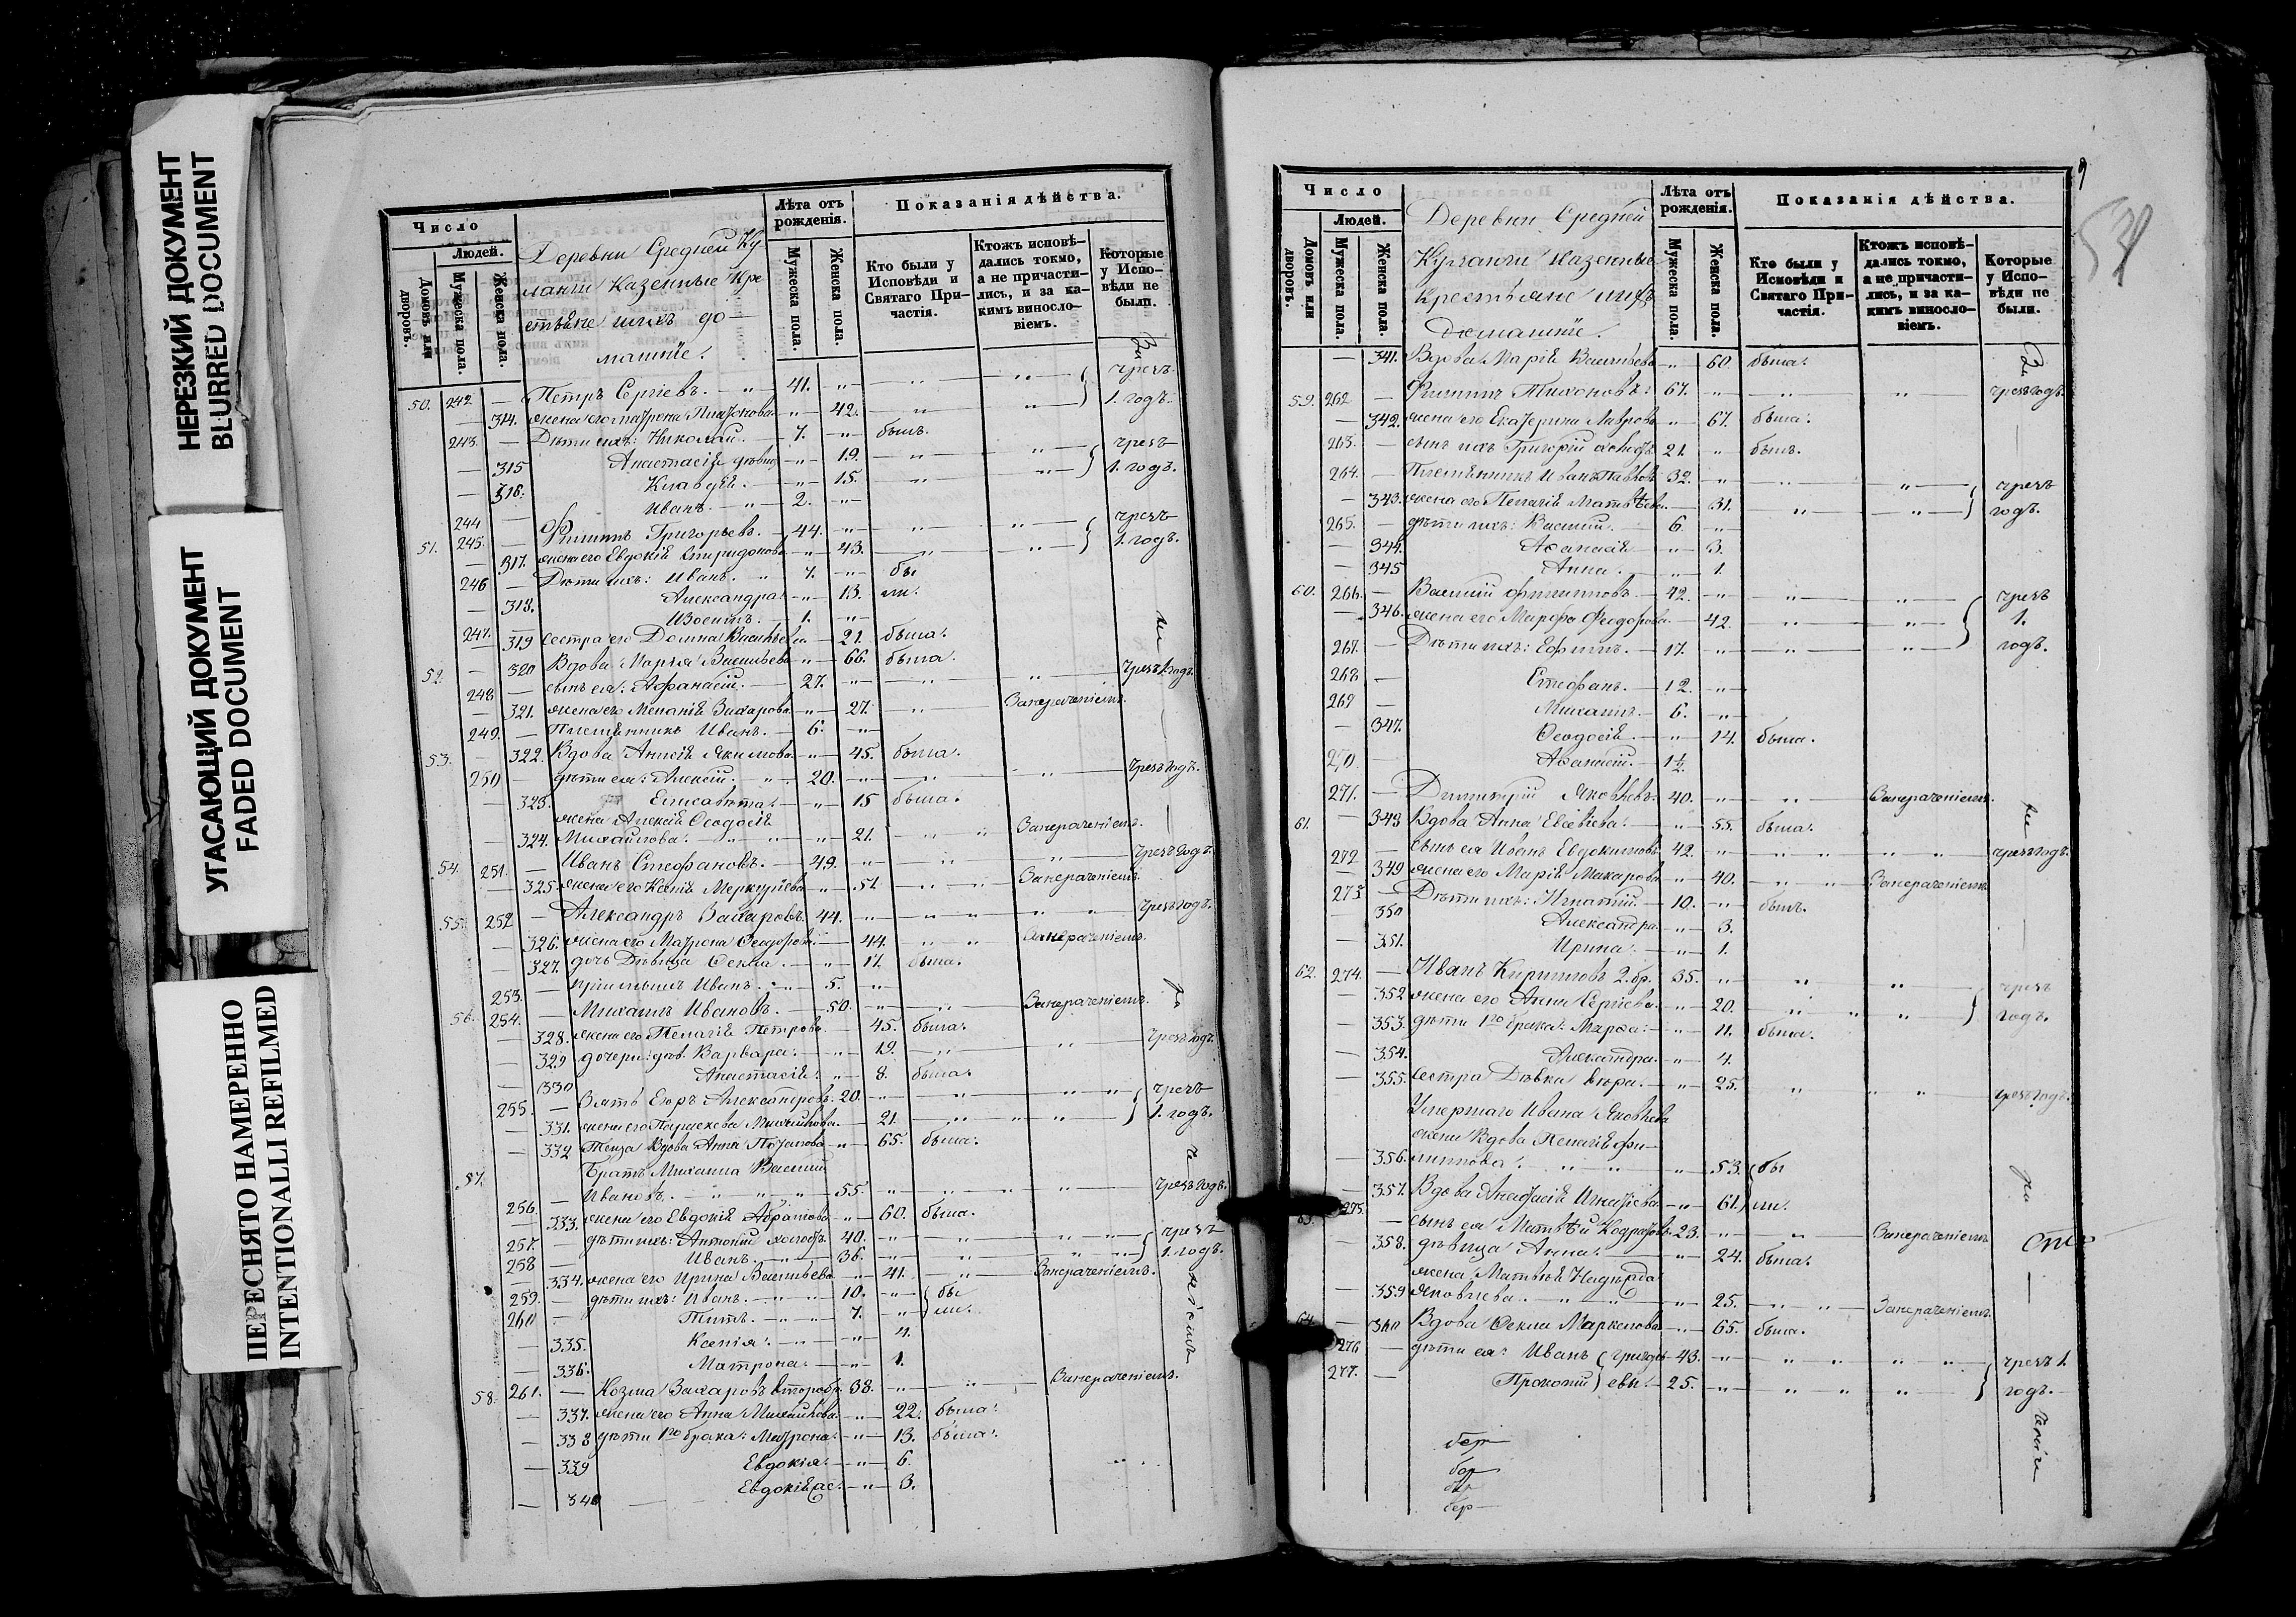 НЕРЕЗКИЙ ДОКУМЕНТ
BLURRED DOCUMENT
УГАСАЮЩИЙ ДОКУМЕНТ
FADED DOCUMENT
ПЕРЕСНЯТО НАМЕРЕННО
INTENTIONALLI REFILMED
Число
Людей.
Домовъ или дворовъ.
Мужеска пола.
Женска пола.
Деревни Средней Ку
ланги Казенные Кре
стьяне и ихъ до
машніе.
Лѣта отъ рожденія.
Мужеска пола.
Женска пола.
Показанія дѣйства.
Кто были у Исповѣди и Святаго Причастія.
Ктожъ исповѣдались токмо, а не причастились, и за какимъ винословіемъ.
Которые у Исповѣди не были.
50. 242 — Петръ Сергіевъ. 41. чрезъ
— 314. жена его Матрона Платонова 42. 1. годъ.
243. — Дѣти ихъ: Николай. 7. былъ.
— 315 Анастасія дѣвка 19. чрезъ
— 316. Клавдія. 15. 1. годъ.
244 — Иванъ. 2.
51. 245. — Филиппъ Григорьевъ. 44. чрезъ
— 317. жена его Евдокія Спиридонова 43. 1. годъ.
246 — Дѣти ихъ: Иванъ. 7. бы
— 318. Александра. 13. ли.
247. — 1.
— 319 сестра его Домна Васильева 21. была.
52. — 320 Вдова Марья Васильева 66. была.
248 — сынъ ея: Афанасій. 27. чрезъ 1. годъ.
— 321. жена его Меланія Захарова 27. Занераченіемъ.
249. — Племянникъ Иванъ. 6.
53. — 322. Вдова Анисія Якимова 45. была.
250 — дѣти ея: Алексій. 20. чрезъ годъ.
— 323. Елисавета. 15 была.
жена Алексія Ѳеодосія
— 324. Михайлова. 21. Занераченіемъ.
54. 251. — Иванъ Стефановъ. 49. чрезъ годъ.
— 325. жена его Ксенія Меркуріева 51. Занераченіемъ.
55. 252 — Александръ Захаровъ. 44. чрезъ годъ.
— 326. жена его Матрона Ѳеодорова 44. Занераченіемъ.
— 327. дочь Дѣвица Ѳекла. 17. была.
253. — Иванъ. 5.
56. 254. — Михаилъ Ивановъ. 50. Занераченіемъ.
— 328. жена его Пелагія Петрова 45. была.
— 329 дочери: дѣв. Варвара. 19. чрезъ годъ
— 330 Анастасія. 8. была.
255. — Зять Егоръ Александровъ. 20. чрезъ
— 331. жена его Параскева Михайлова. 21. 1. годъ.
— 332 Теща Вдова Анна Потапова 65. была.
57. Братъ Михаила Василій
256. — Ивановъ. 55. чрезъ годъ.
— 333. жена его Евдокія Абрамова 60. была.
257. — дѣти ихъ: Антоній холостъ 40. чрезъ
258 — Иванъ. 36. 1. годъ.
— 334. жена его Ирина Васильева 41. Занераченіемъ.
259. — дѣти ихъ: Иванъ. 10. бы
260 — Титъ. 7. ли.
— 335. Ксенія. 4.
— 336. Матрона. 1.
58. 261. — Козма Захаровъ второбр. 38. Занераченіемъ.
— 337. жена его Анна Михайлова 22. была.
— 338 дѣти 1го брака: Матрона. 13. была.
— 339 Евдокія. 6.
— 340 Евдокія 3.
Число
Людей.
Домовъ или дворовъ.
Мужеска пола.
Женска пола.
Деревни Средней
Кулланги Казенные
Крестьяне и ихъ
Домашніе.
Лѣта отъ рожденія.
Мужеска пола.
Женска пола.
Показанія дѣйства.
Кто были у Исповѣди и Святаго Причастія.
Ктожъ исповѣдались токмо, а не причастились, и за какимъ винословіемъ.
Которые у Исповѣди не были.
9
— 341. Вдова Марія Васильева 60. была.
59. 262 — Филиппъ Тихоновъ. 67. чрезъ годъ.
— 342. жена его Екатерина Лаврова 67. была.
263. — сынъ ихъ Григорій холостъ 21. былъ.
264. — Племянникъ Иванъ Павловъ 32. чрезъ
— 343. жена его Пелагія Матвѣева 31. годъ.
265. — дѣти ихъ: Василій. 6.
— 344. Афанасія 3.
— 345 Анна. 1.
60. 266. — Василій Филипповъ. 42. чрезъ
— 346. жена его Марфа Ѳеодорова 42. 1.
267. — Дѣти ихъ: Ефимъ. 17. годъ.
268 — Стефанъ. 12.
269 — Михаилъ. 6.
— 347. Ѳеодосія. 14. была.
270. — Афанасій. 1½.
271. — Димитрій Яковлевъ. 40. Занераченіемъ.
61. — 348 Вдова Анна Евсевіева. 55. была.
272 — сынъ ея Иванъ Евдокимовъ 42. чрезъ годъ.
— 349 жена его Марія Макарова 40. Занераченіемъ
273 — Дѣти ихъ: Игнатій. 10. былъ.
— 350 Александра 3.
— 351. Ирина. 1.
62. 274. — Иванъ Кирилловъ 2. бр. 35. чрезъ
— 352 жена его Анна Сергіева. 20. годъ.
— 353. дѣти 1го брака: Марфа. 11. была.
— 354. Александра. 4.
— 355. Сестра Дѣвка 25. чрезъ годъ.
Умершаго Ивана Яковлева
жена Вдова Пелагія Фи-
— 356. липпова. 53. бы
— 357. Вдова Анастасія Игнатіева. 61. ли.
63. 275. — сынъ ея Матвѣй Кодратовъ 23. Занераченіемъ
— 358. дѣвица Анна. 24. была.
жена Матвѣя Надежда
— 359 Яковлева. 25. Занераченіемъ.
64. — 360 Вдова Ѳекла Маркелова 65. была.
276 — дѣти ея: Иванъ 43. чрезъ 1.
277. — Прокопій евы. 25. годъ.